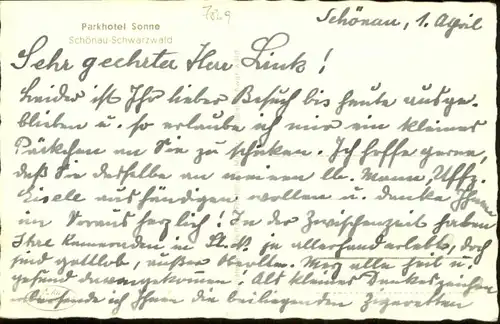 Parkhotel Sonne
Schönau-Schwarzwald
Schönau, 1. April
Sehr geehrter Herr Link!
Leider ist Ihr lieber Besuch bis heute ausge-
blieben u. so erlaube ich mir ein kleines
Päckchen an Sie zu schicken. Ich hoffe gerne,
daß Sie dasselbe an meinen lb. Mann, Uffz.
Eisele aushändigen wollen u. danke Ihnen
im Voraus herzlich! In der Zwischenzeit haben
Ihre Kameraden in ja allerhand erlebt, doch
sind gottlob, außer alle heil u.
gesund davongekommen! Als kleines Dankeszeichen
übersende ich Ihnen die beiliegenden Zigaretten